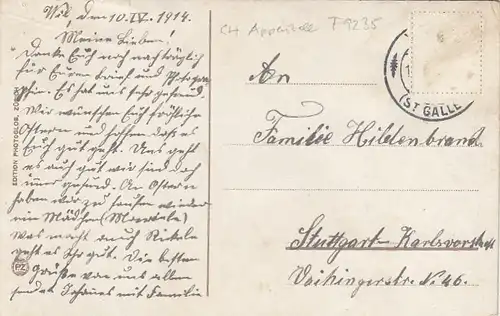 Wil, den 10. IV. 1914.
Meine Lieben!
Danke Euch noch nachträglich
für Euren Brief und Photogra=
phie. Es hat uns sehr gefreut.
Wir wünschen Euch fröhliche
Ostern und hoffen daß es
Euch gut geht. Uns geht
es auch gut wir sind doch
immer gesund. An Ostern
haben wir zu taufen wieder
ein Mädchen
Was macht auch
geht es Ihr gut. Die besten
Grüße von uns allen
sendet Johannes mit Familie
EDITION PHOTOGLOB, ZÜRICH
PZ
CH Appenzell T 9235
(ST. GALLEN
An
Familie Hildenbrand
Stuttgart-Karlsvorstadt
Vaihingerstr. N. 46.